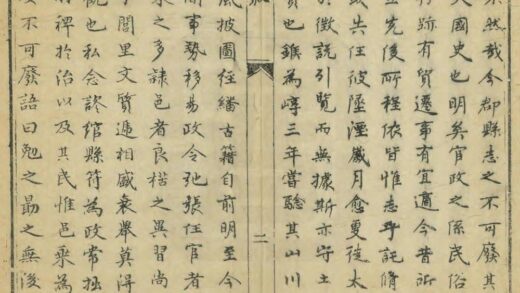 然哉今郡縣志之不可廢其
國史也明矣官政之係民俗
行跡有貿遷事有宜適今昔所
先後所程依皆惟志乎託脩
或共任彼陞湮歲月愈夐徒太
於徵説引覽而無據斯亦守土
責也錐為嶂三年嘗驗其山川
二
風披圖任繙古籍自前明至今
間事勢移易政令弛張任官者
來之多隸邑者良楛之異習尚
閭里文質遞相盛衰舉莫得
覩也私念謬綰縣符為政常拙
裨於治以及其民惟邑乘為
不可廢語曰勉之勗之無後